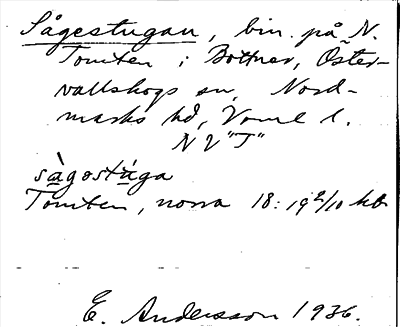 Sågestugan, bin. på N.
Tomten i Bottner, Öster-
vallskogs sn, Nord-
marks hd, Värml l.
NV "T"
sàgostúga
Tomten, norra 18: 19 2/10 kb
E. Andersson 1936.